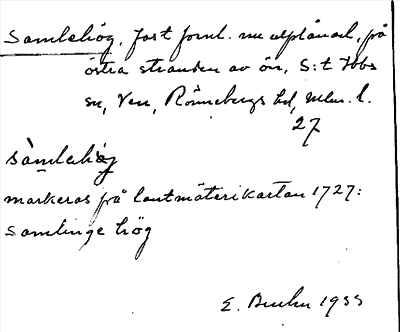 Samlehög, fast forml. nu utplånad, på
östra stranden av ön, S:t Ibbs
sn, Ven, Rönnebergs hd, Mlm. l.
27
sàmlehö̀g
markeras på lantmäterikartan 1727:
Samlinge hög
E. 1955